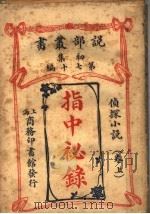 說部叢書
初集
第七十編
偵探小說
卷上
指中祕錄
上海商務印書館發行